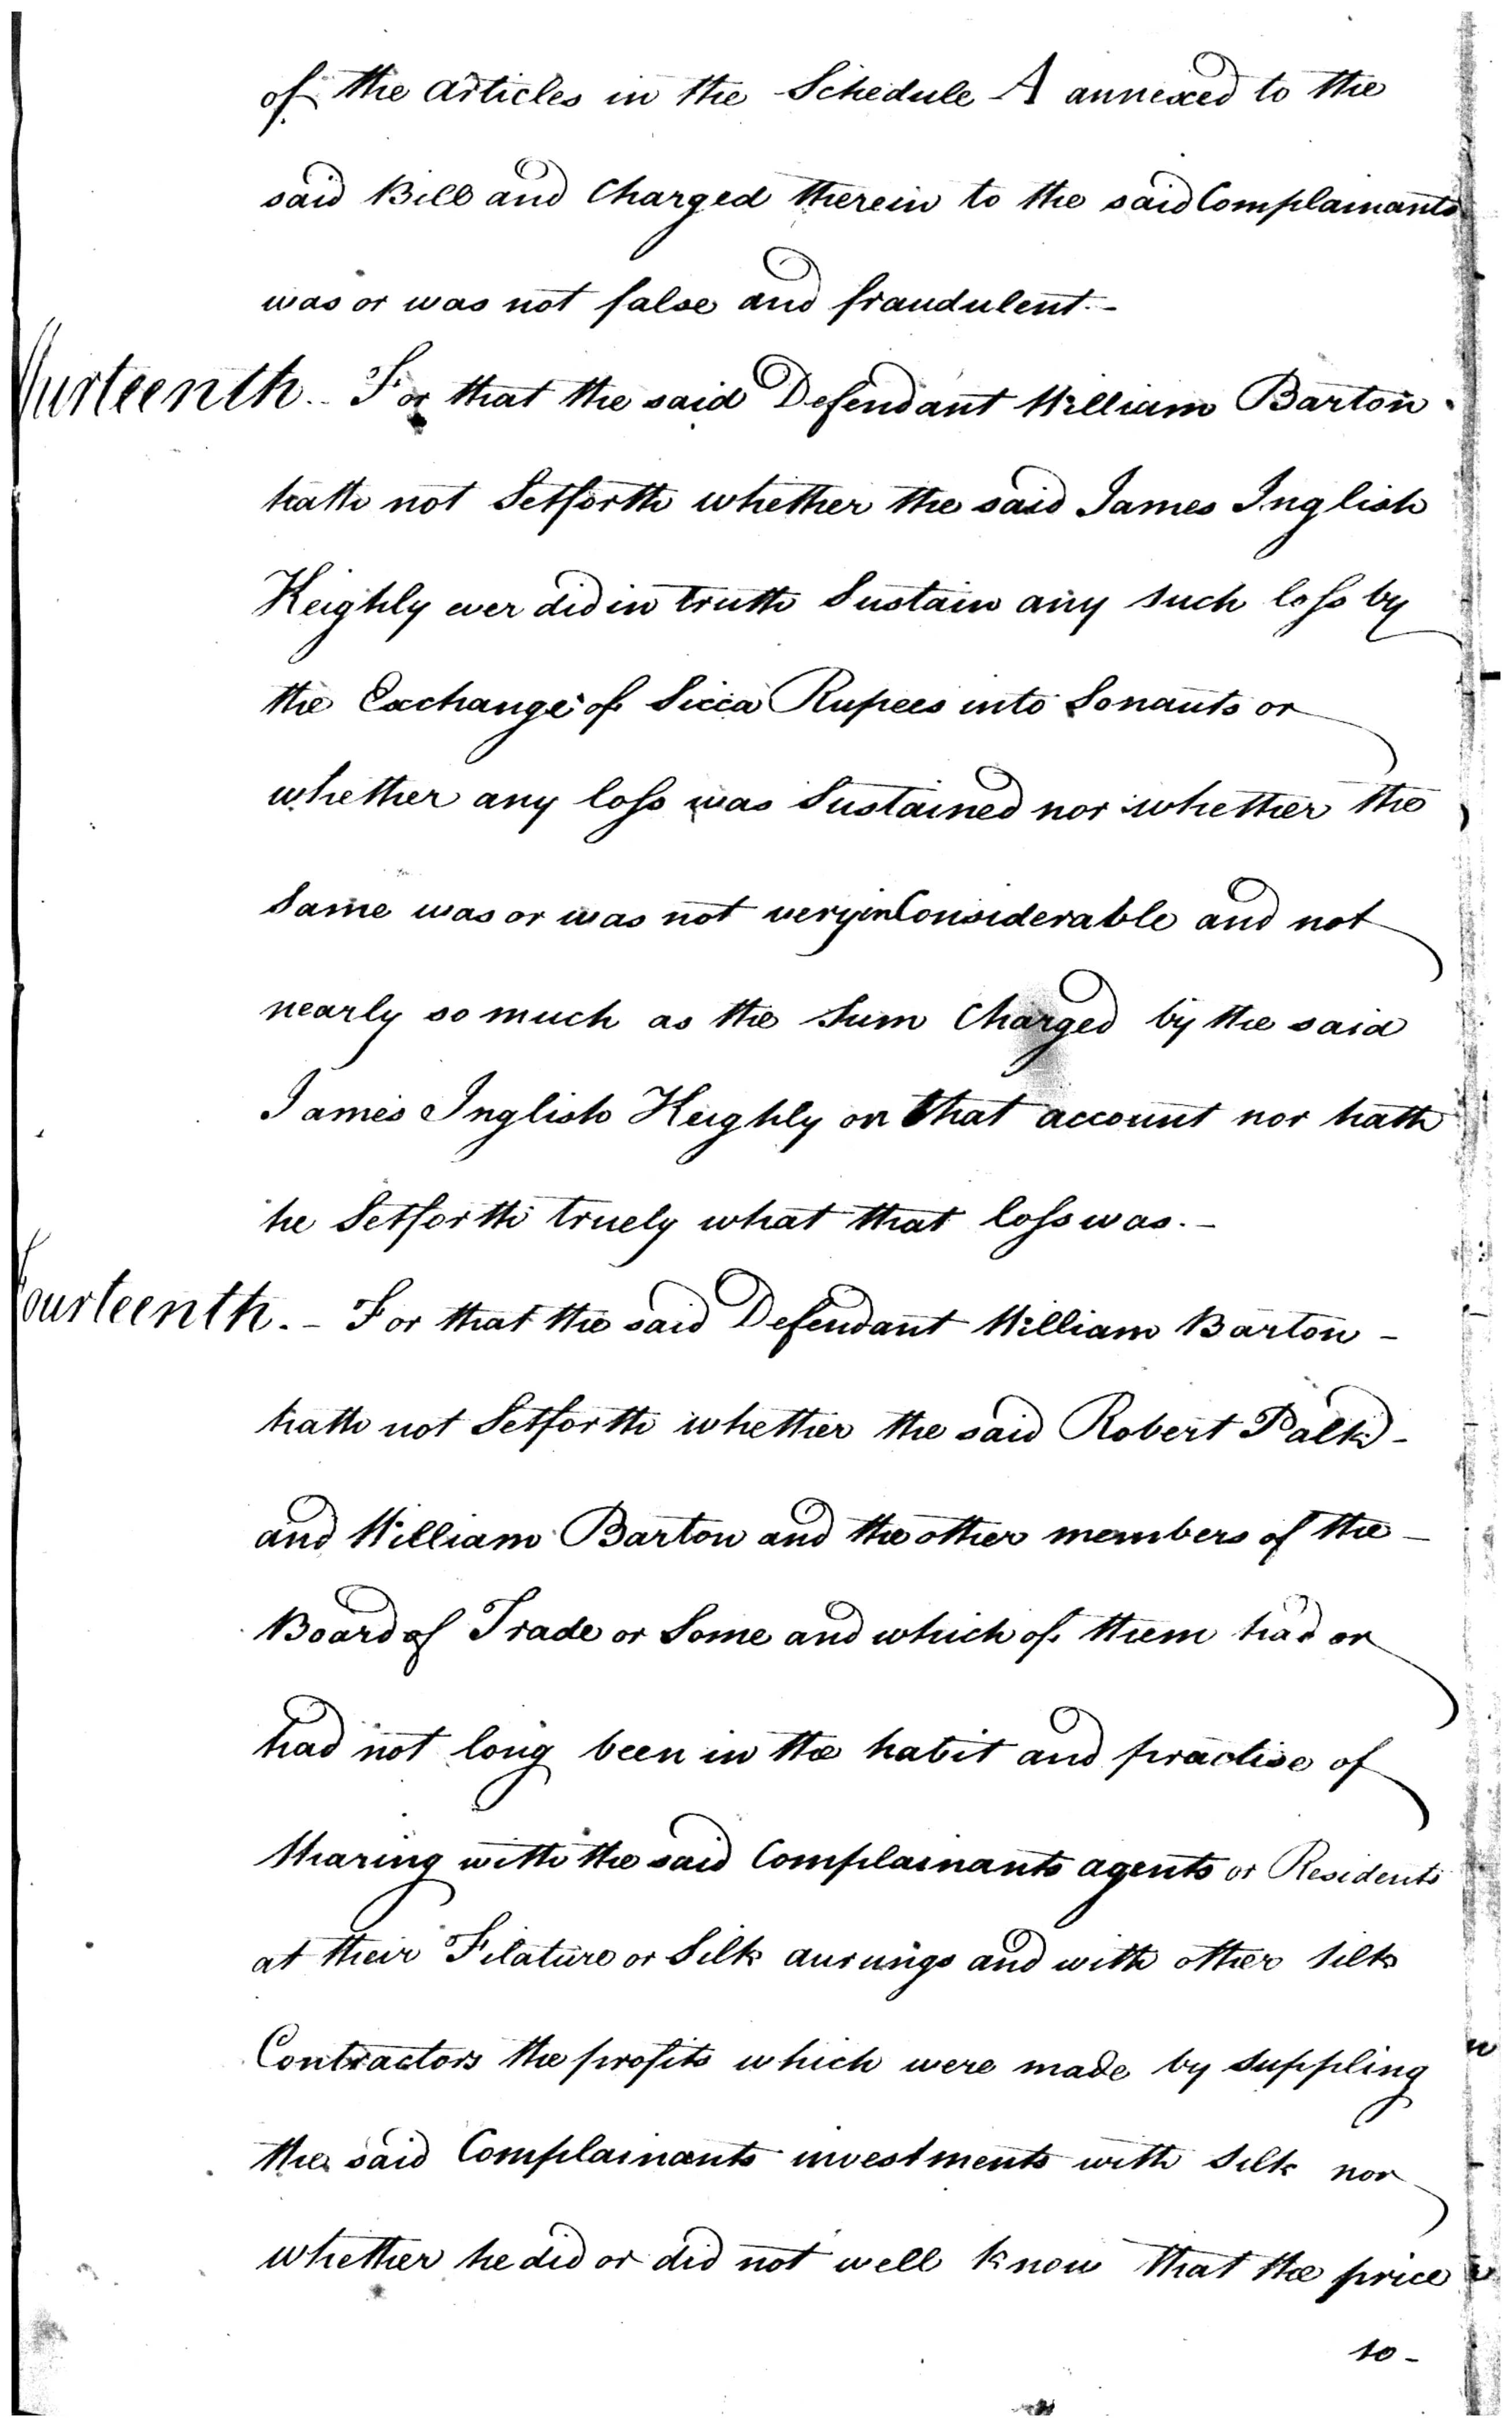 of the articles in the Schedule A annexed to the
said Bill and Charged therein to the said Complainants
was or was not false and fraudulent.-
urteenth.. For that the said Defendant William Barton
hath not Setforth whether the said James Inglish
Keighly ever did in truth Sustain any such loss by
the Exchange of Sicca Rupees into Sonauts or
whether any loss was Sustained nor whether the
Same was or was not very inConsiderable and not
nearly so much as the Sum Charged by the said
James Inglish Keighly on that account nor hath
he Setforth truely what that loss was.-
ourteenth.- For that the said Defendant William Barton -
hath not Setforth whether the said Robert Palk -
and William Barton and the other members of the -
Board of Trade or Some and which of them had or
had not long been in the habit and practise of
Sharing with the said Complainants agents or Residents
at their Filature or Silk aurungs and with other Silk
Contractors the profits which were made by suppling
the said Complainants investments with Silk nor
whether he did or did not well know that the price
so -